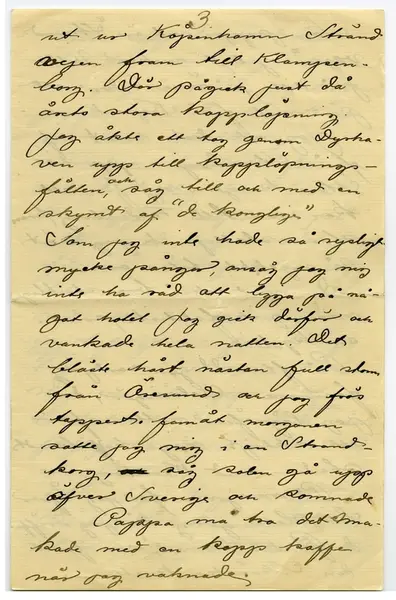 3
ut ur Köpenhamn Strand
vejen fram till Klampen-
borg. Där pågick just då
årets stora kapplöpning
Jag åkte ett tag genom Dyrha-
ven upp till kapplöpnings-
fälten, och såg till och med en
skymt af "de kongliga"
Som jag inte hade så rysligt
mycke pängar, ansåg jag mig
inte ha råd att ligga på nå-
got hotel Jag gick därför och
vankade hela natten. Det
blåste hårt nästan full storm
från Öresund och jag frös
tappert. framåt morgonen
satte jag mig i en Strand-
korg, såg solen gå upp
öfver Sverige och somnade
Pappa må tro det sma-
kade med en kopp kaffe
när jag vaknade.